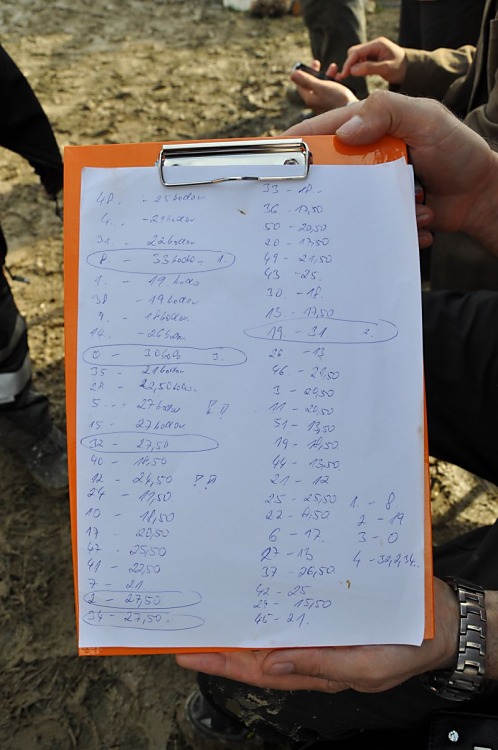 48. - 25 bodov
4. - 21 bodov
31. - 22 bodov
8. - 33 bodov 1.
1. - 19 bodov
38 - 19 bodov
9. - 18 bodov
14. - 26 bodov
0 - 30 bodov 3.
35 - 21 bodov
28 - 22,50 bodov
5 - 27 bodov
15 - 27 bodov
32 - 27,50
40 - 18,50
12 - 24,50
24 - 17,50
10 - 18,50
17 - 20,50
47 - 25,50
41 - 22,50
7 - 21
2 - 27,50
34 - 27,50
33 - 18.
36 - 17,50
50 - 20,50
20 - 17,50
49 - 21,50
43 - 25.
30 - 18.
13 - 17,50
19 - 31 2.
26 - 13
46 - 20,50
3 - 20,50
11 - 20,50
51 - 13,50
19 - 18,50
44 - 13,50
21 - 12
25 - 25,50
22 - 8,50
6 - 17.
27 - 13
37 - 26,50
42 - 25
29 - 15,50
45 - 21.
1. - 8
2 - 19
3 - 0
4 - 32,2,34..